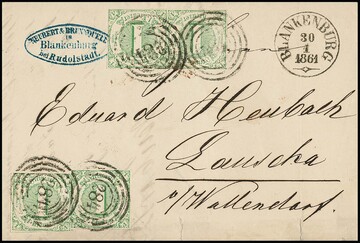 in
Blankenburg
bei Rudolstadt.
BLANKENBURG
30
1
1861
Eduard Heubach
Lauscha
p/Wallendorf.